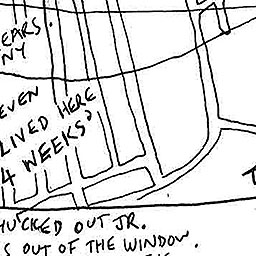 EARS.
NY
EVEN
LIVED HERE
4 WEEKS?
HUCKED OUT JR.
S OUT OF THE WINDOW.